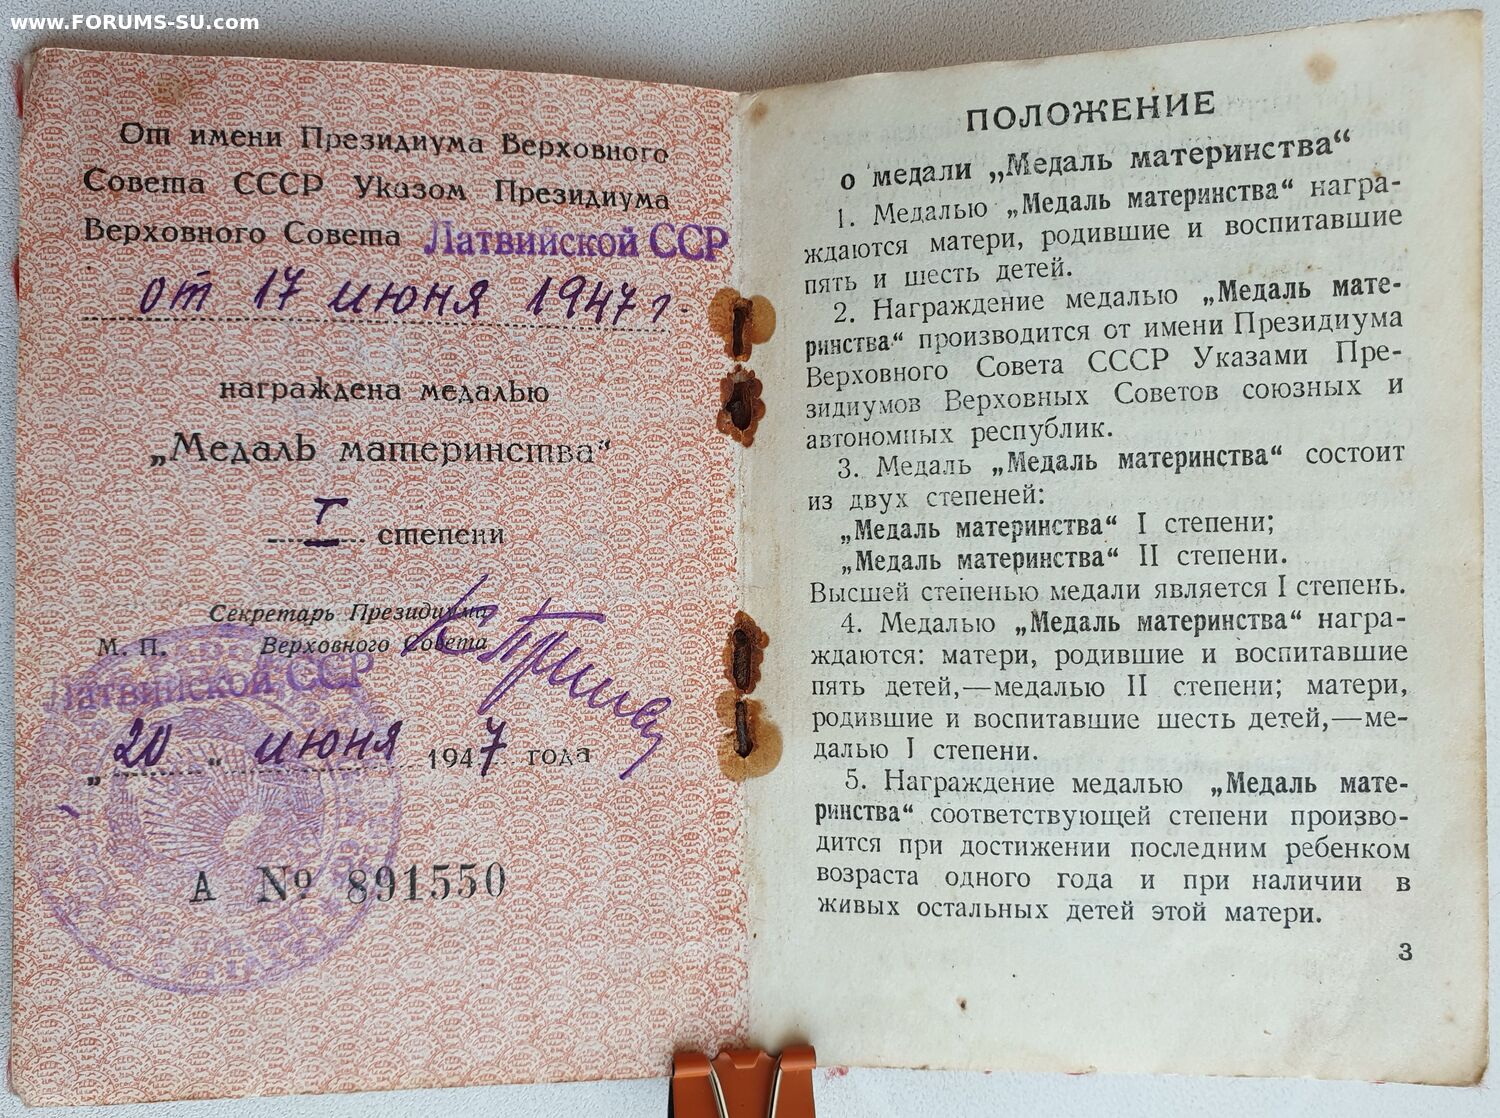 www.FORUMS-SU.com
От имени Президиума Верховного
Совета СССР Указом Президиума
Верховного Совета Латвийской ССР
от 17 июня 1947 г.
награждена медалью
„Медаль материнства“
I степени
Секретарь Президиума
М. П. Верховного Совета
Латвийской ССР
„20“ июня 1947 года
А № 891550
ПОЛОЖЕНИЕ
о медали „Медаль материнства“
1. Медалью „Медаль материнства“ награ-
ждаются матери, родившие и воспитавшие
пять и шесть детей.
2. Награждение медалью „Медаль мате-
ринства“ производится от имени Президиума
Верховного Совета СССР Указами Пре-
зидиумов Верховных Советов союзных и
автономных республик.
3. Медаль „Медаль материнства“ состоит
из двух степеней:
„Медаль материнства“ I степени;
„Медаль материнства“ II степени.
Высшей степенью медали является I степень.
4. Медалью „Медаль материнства“ награ-
ждаются: матери, родившие и воспитавшие
пять детей,—медалью II степени; матери,
родившие и воспитавшие шесть детей,—ме-
далью I степени.
5. Награждение медалью „Медаль мате-
ринства“ соответствующей степени произво-
дится при достижении последним ребенком
возраста одного года и при наличии в
живых остальных детей этой матери.
3